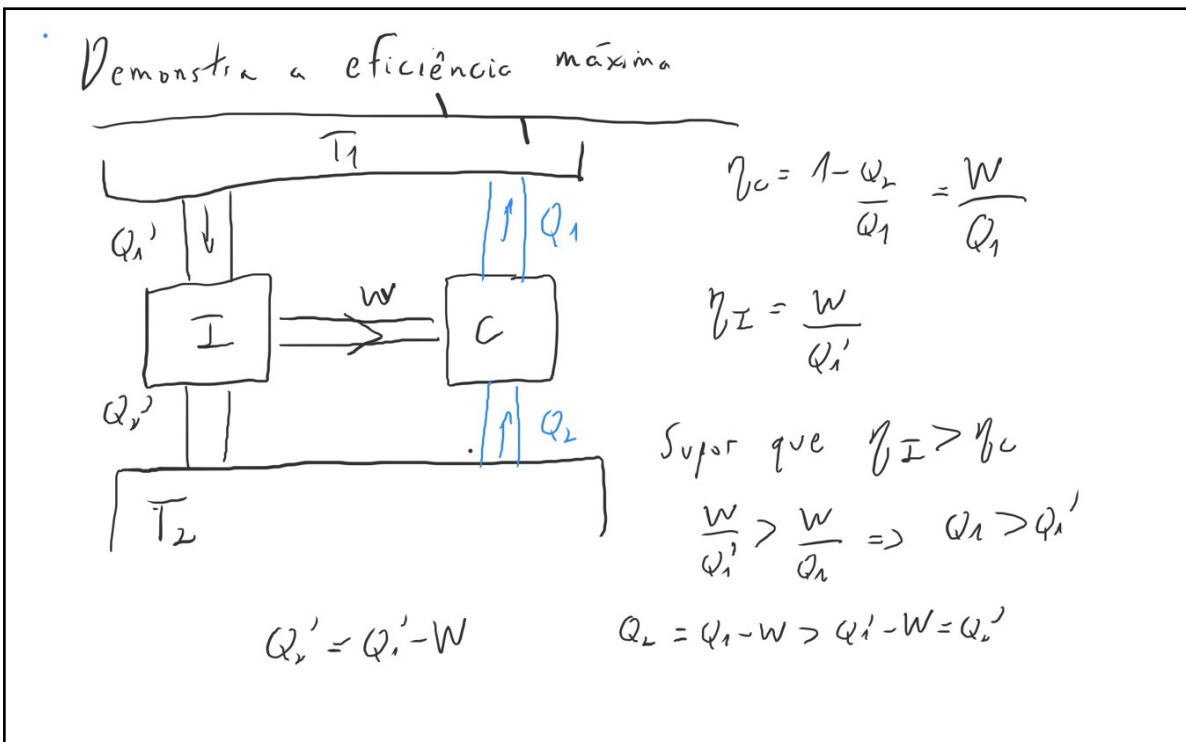 Demonstra a eficiência máxima
T1
Q1'
Q1
I
W
C
Q2'
Q2
T2
ηc = 1 - Q2/Q1 = W/Q1
ηI = W/Q1'
Supor que ηI > ηc
W/Q1' > W/Q1 => Q1 > Q1'
Q2' = Q1' - W
Q2 = Q1 - W > Q1' - W = Q2'